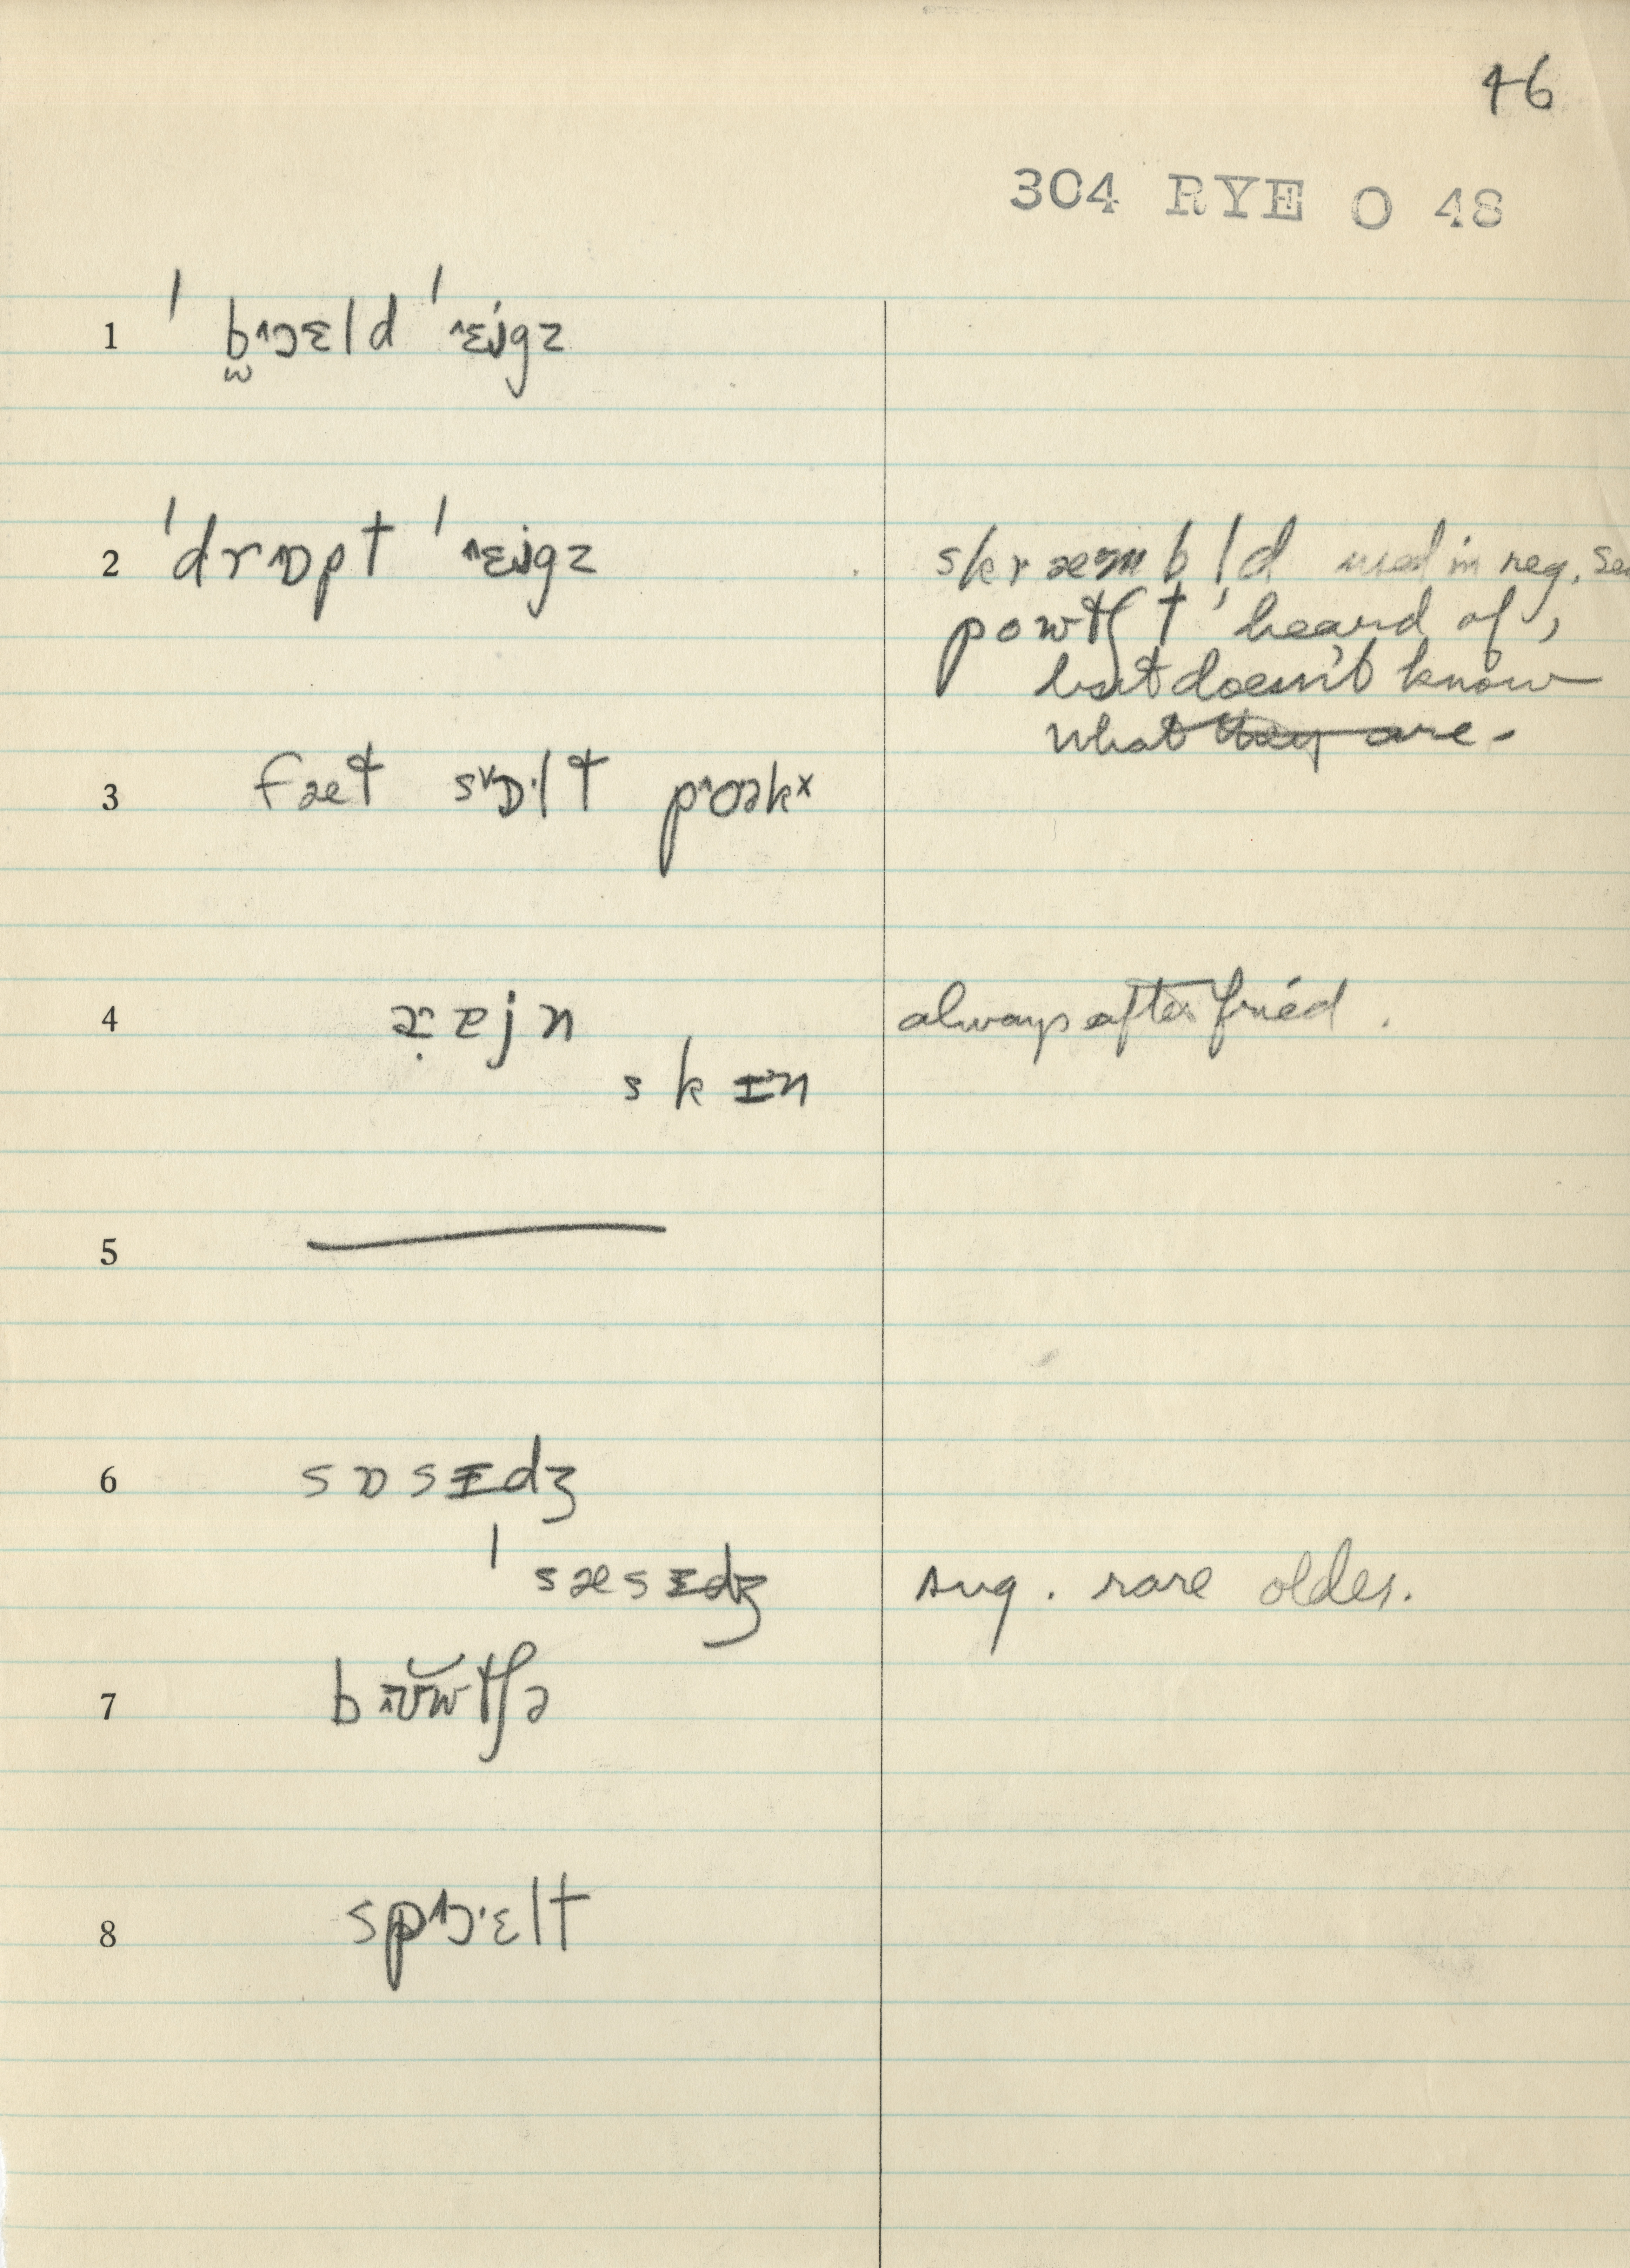 46
304 RYE O 48
1 ˈb̫ɔ˄ɛld ˈɛ˄jgz
2 ˈdrɒ˄pt ˈɛ˄jgz
skræmbl̩d used in reg.
powtʃt heard of,
but doesn't know
what they are.
3 fæt sɒ˅·lt po˄əkˣ
4 ɐjn
always after fried.
skɪn
5
6 sɒsɪdʒ
ˈsæsɪdʒ
sug. rare older.
7 bʊ˄w̆tʃə
8 spɔ˄·ɛlt